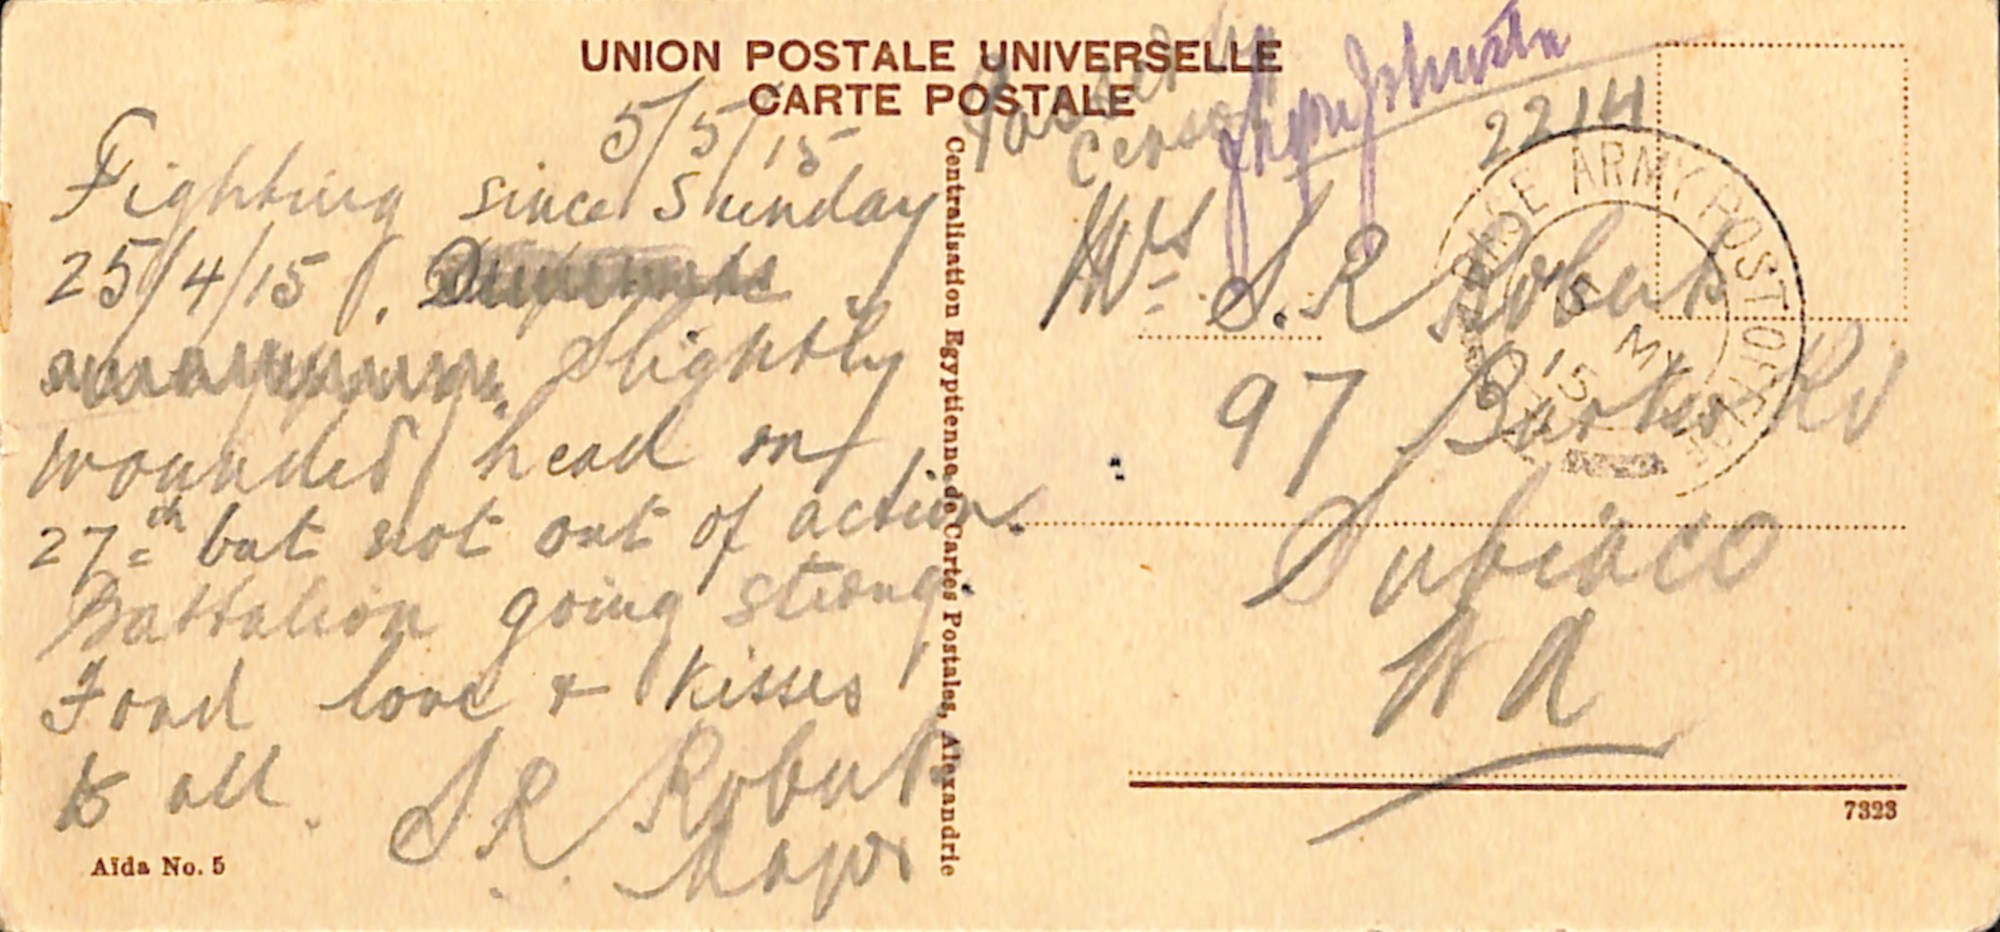 UNION POSTALE UNIVERSELLE
CARTE POSTALE
5/5/15
Fighting since Sunday
25/4/15.
Slightly
wounded head on
27th but not out of action.
Battalion going strong
Fond love & kisses
to all.
S R Roberts
Major
Aïda No. 5
Centralisation Egyptienne de Cartes Postales, Alexandrie
Passed by
Censor
Johnston
2214
BASE ARMY POST OFFICE
MY
15
Mrs S. R Roberts
97 Barker Rd
Subiaco
W A
7323